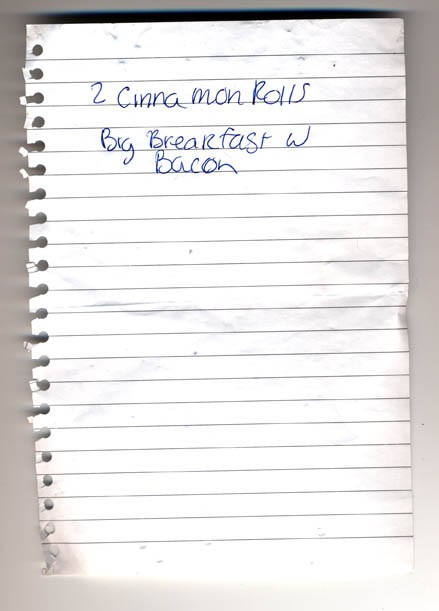 2 Cinnamon Rolls
Big Breakfast w
Bacon